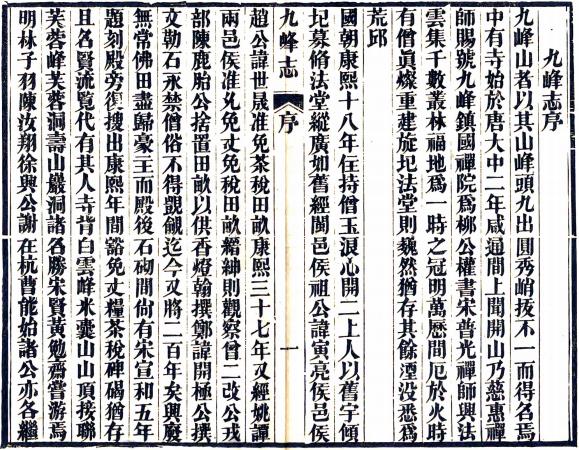 九峰志序
九峰山者以其山峰頭九出圓秀峭拔不一而得名焉
中有寺始於唐大中二年咸通間上聞開山乃慈惠禪
師賜號九峰鎮國禪院為柳公權書宋普光禪師興法
雲集千數叢林福地為一時之冠明萬厯間厄於火時
有僧眞燦重建旋圮法堂則巍然猶存其餘湮没悉為
荒邱
國朝康熙十八年住持僧玉浪心開二上人以舊宇傾
圮募脩法堂縱廣如舊經閩邑侯祖公諱寅亮侯邑侯
九峰志 序 一
趙公諱世晟准免茶稅田畝康熙三十七年又經姚譚
兩邑侯准允免丈免稅田畝縉紳則觀察曾二改公戎
部陳鹿胎公捨置田畝以供香燈翰撰鄭諱開極公撰
文勒石永禁僧俗不得覬覦迄今又將二百年矣興廢
無常佛田盡歸豪主而殿後石砌間尚有宋宣和五年
題刻殿旁復搜出康熙年間豁免丈糧茶稅碑碣猶存
且名賢流覽代有其人寺背白雲峰米囊山山頂接聯
芙蓉峰芙蓉洞壽山巖洞諸名勝宋賢黄勉齋嘗游焉
明林子羽陳汝翔徐興公謝在杭曹能始諸公亦各繼